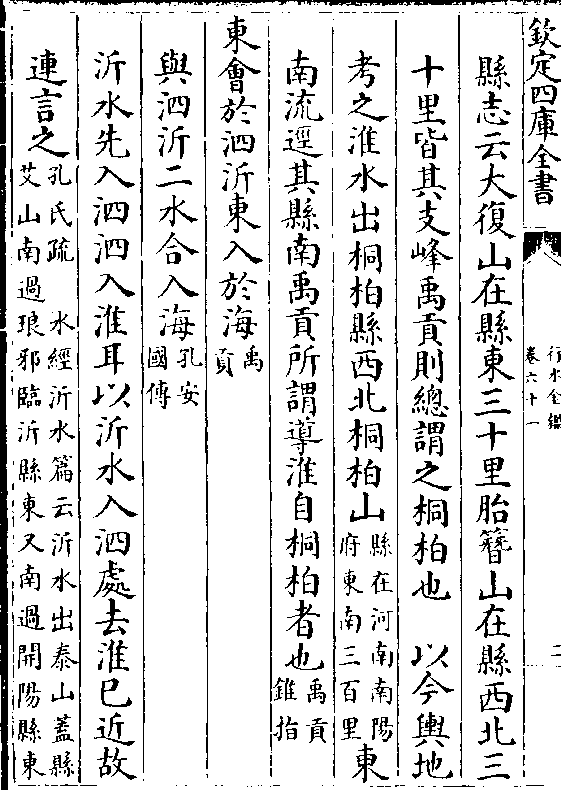 欽定四庫全書
行水金鑑
卷六十一
二
縣志云大復山在縣東三十里胎簪山在縣西北三
十里皆其支峰禹貢則總謂之桐柏也　以今輿地
考之淮水出桐柏縣西北桐柏山縣在河南南陽府東南三百里東
南流逕其縣南禹貢所謂導淮自桐柏者也禹貢錐指
東會於泗沂東入於海禹貢
與泗沂二水合入海孔安國傳
沂水先入泗泗入淮耳以沂水入泗處去淮已近故
連言之孔氏疏　水經沂水篇云沂水出泰山蓋縣艾山南過琅邪臨沂縣東又南過開陽縣東